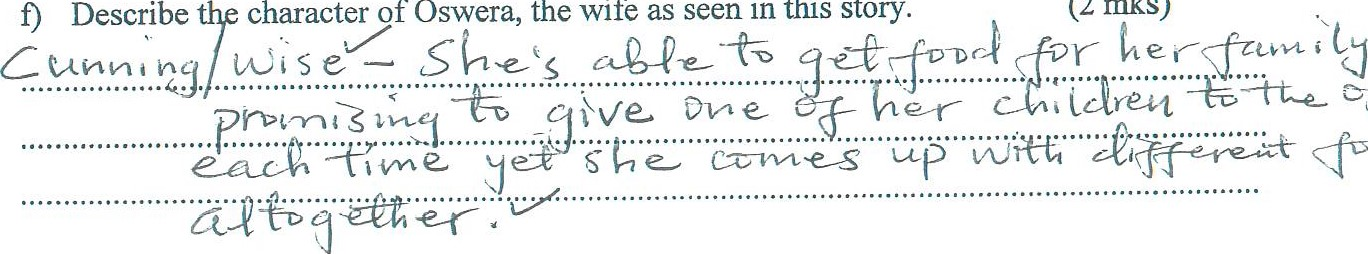 f) Describe the character of Oswera, the wife as seen in this story. (2 mks)
Cunning/wise - She's able to get food for her family
promising to give one of her children to the
each time yet she comes up with different
altogether.